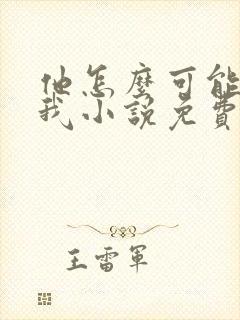 他怎麼可能
我小說免費
王雷軍